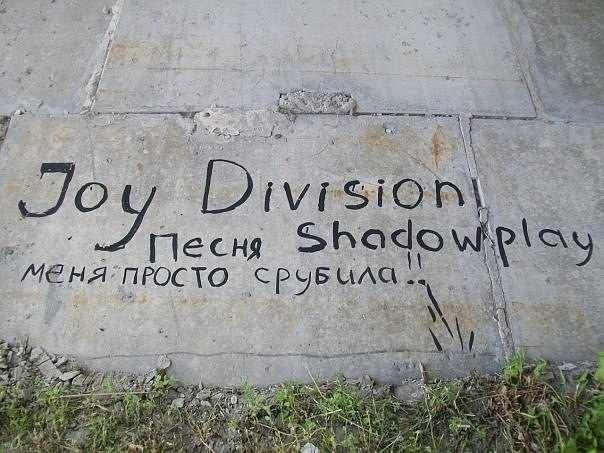 Joy Division
Песня Shadowplay
меня просто срубила!!